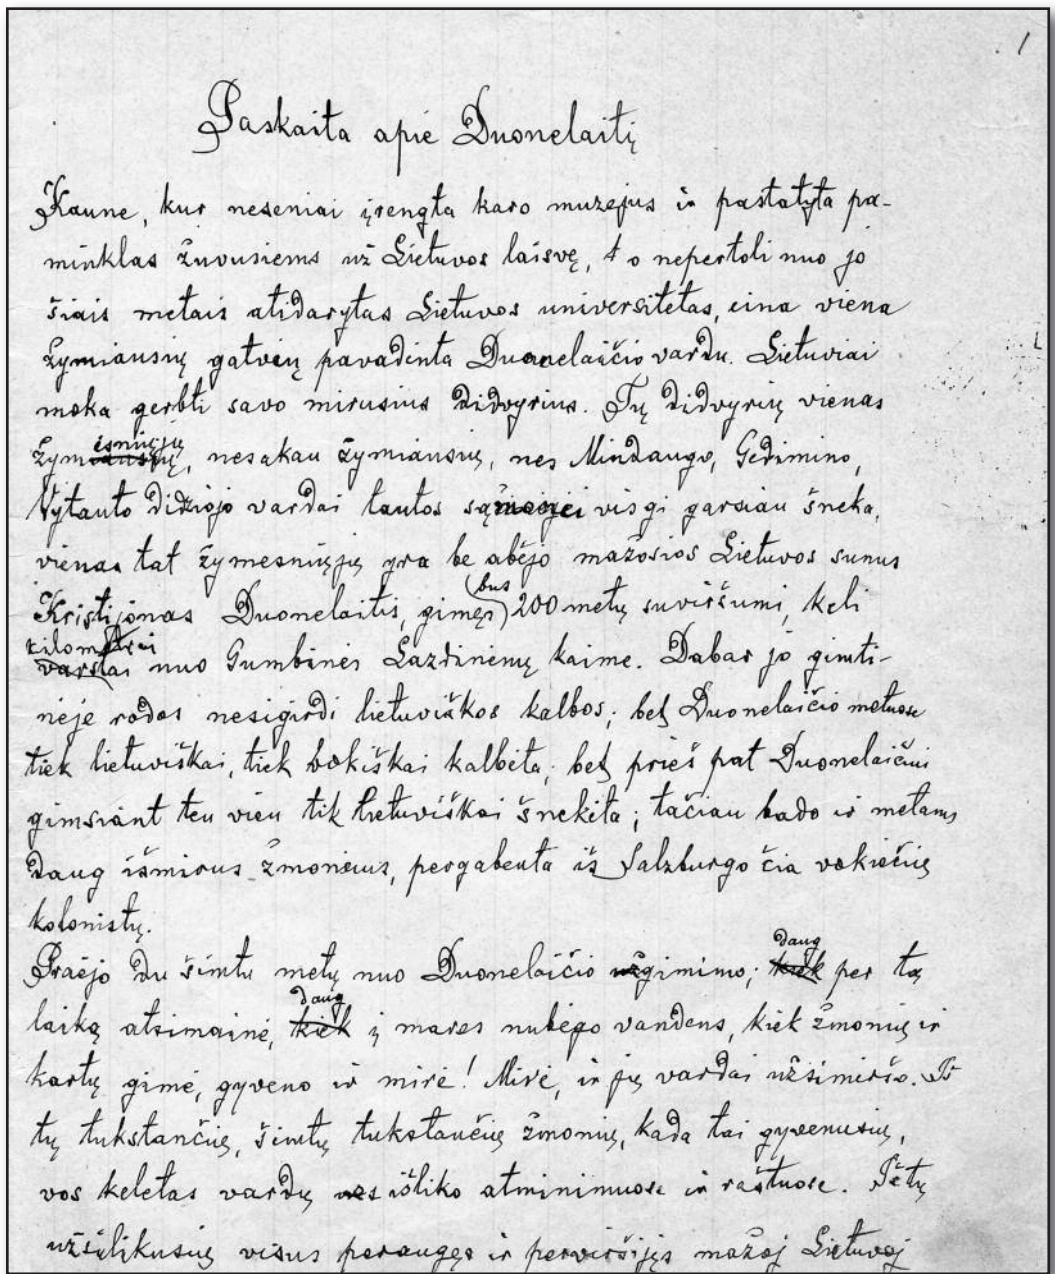 1
Paskaita apie Duonelaitį
Kaune, kur neseniai įrengta karo muzejus ir pastatyta pa-
minklas žuvusiems už Lietuvos laisvę, o nepertoli nuo jo
šiais metais atidarytas Lietuvos universitetas, eina viena
žymiausių gatvių pavadinta Duonelaičio vardu. Lietuviai
moka gerbti savo mirusius didvyrius. Tų didvyrių vienas
žymesniųjų, nesakau žymiausių, nes Mindaugo, Gedimino,
Vytauto didžiojo vardai tautos sąmonėj visgi garsiau šneka,
vienas tat žymesniųjų yra be abėjo mažosios Lietuvos sunus
bus
Kristijonas Duonelaitis, gimęs 200 metų suviršumi, keli
kilometrai
varstai nuo Gumbinės Lazdinėnų kaime. Dabar jo gimti-
nėje rodos nesigirdi lietuviškos kalbos; bet Duonelaičio metuose
tiek lietuviškai, tiek vokiškai kalbėta; bet prieš pat Duonelaičiui
gimsiant ten vien tik lietuviškai šnekėta; tačiau bado ir metams
daug išmirus žmonėms, pergabenta iš Salzburgo čia vokiečių
kolonistų.
daug
Praėjo du šimtu metų nuo Duonelaičio gimimo; kiek per tą
daug
laiką atsimainė, kiek į mares nubėgo vandens, kiek žmonių ir
kartų gimė, gyveno ir mirė! Mirė, ir jų vardai užsimiršo. Iš
tų tukstančių, šimtų tukstančių žmonių, kada tai gyvenusių,
vos keletas vardų išliko atminimuose ir raštuose. Šėtų
užsilikusių visus peraugęs ir perviršijęs mažoj Lietuvoj